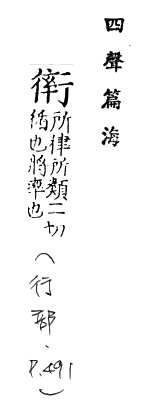 四聲篇海
所律所類二切
也將率也
（行部．P.491）